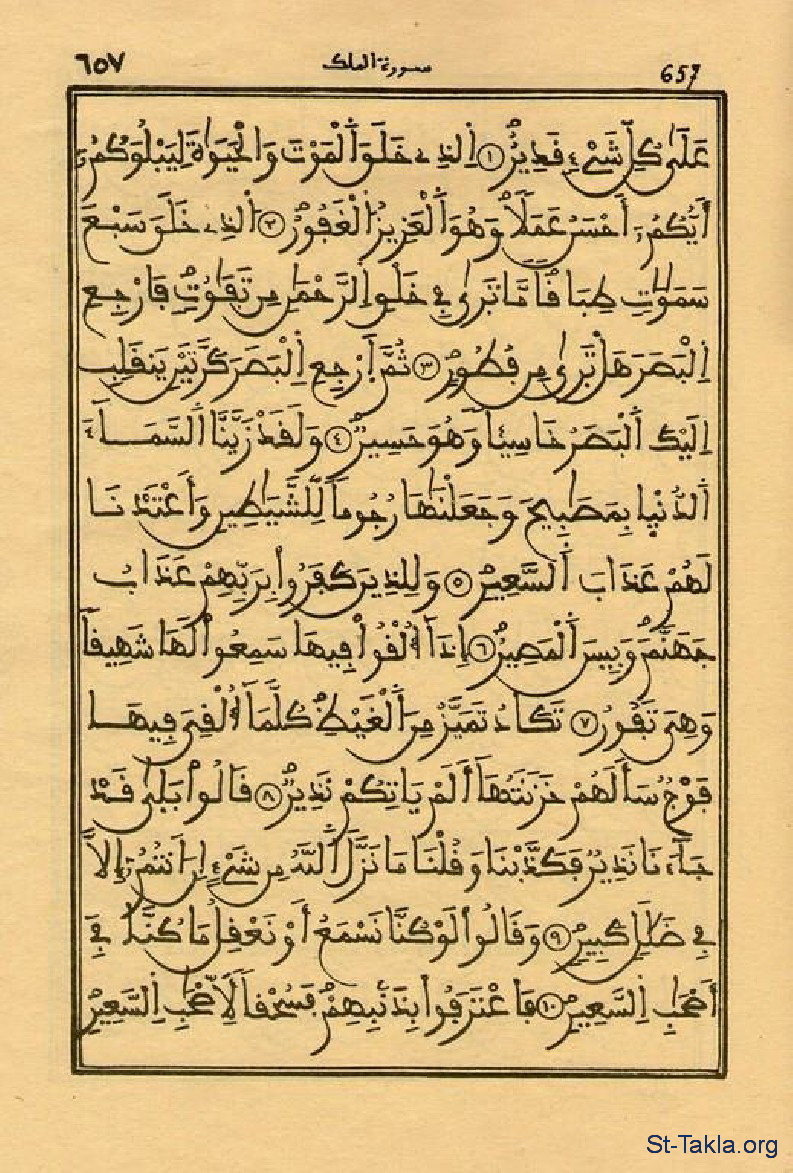 657 سورة الملك ٦٥٧
عَلَىٰ كُلِّ شَيْءٍ قَدِيرٌ ١ اِ۬لذِے خَلَقَ اَ۬لْمَوْتَ وَالْحَيَوٰةَ لِيَبْلُوَكُمُۥٓ
أَيُّكُمُۥٓ أَحْسَنُ عَمَلًا وَهُوَ اَ۬لْعَزِيزُ اُ۬لْغَفُورُ ٢ اُ۬لذِے خَلَقَ سَبْعَ
سَمَٰوَٰتٍ طِبَاقًا مَّا تَرَىٰ فِے خَلْقِ اِ۬لرَّحْمَٰنِ مِن تَفَٰوُتٍ فَارْجِعِ
اِ۬لْبَصَرَ هَلْ تَرَىٰ مِن فُطُورٍ ٣ ثُمَّ اَ۪رْجِعِ اِ۬لْبَصَرَ كَرَّتَيْنِ يَنقَلِبِ
اِلَيْكَ اَ۬لْبَصَرُ خَاسِئًا وَهُوَ حَسِيرٌ ٤ وَلَقَدْ زَيَّنَّا اَ۬لسَّمَآءَ
اَ۬لدُّنْيَا بِمَصَٰبِيحَ وَجَعَلْنَٰهَا رُجُومًا لِّلشَّيَٰطِينِ وَأَعْتَدْنَا
لَهُمْ عَذَابَ اَ۬لسَّعِيرِ ٥ وَلِلذِينَ كَفَرُوا بِرَبِّهِمْ عَذَابُ
جَهَنَّمَ وَبِيسَ اَ۬لْمَصِيرُ ٦ إِذَآ أُلْقُوا فِيهَا سَمِعُوا لَهَا شَهِيقًا
وَهِيَ تَفُورُ ٧ تَكَادُ تَمَيَّزُ مِنَ اَ۬لْغَيْظِ كُلَّمَآ أُلْقِيَ فِيهَا
فَوْجٌ سَأَلَهُمْ خَزَنَتُهَآ أَلَمْ يَاتِكُمْ نَذِيرٌ ٨ قَالُوا بَلَىٰ قَدْ
جَآءَنَا نَذِيرٌ فَكَذَّبْنَا وَقُلْنَا مَا نَزَّلَ اَ۬للَّهُ مِن شَيْءٍ اِنَ اَنتُمُۥٓ إِلَّا
فِے ضَلَٰلٍ كَبِيرٍ ٩ وَقَالُوا لَوْ كُنَّا نَسْمَعُ أَوْ نَعْقِلُ مَا كُنَّا فِےٓ
أَصْحَٰبِ اِ۬لسَّعِيرِ ١٠ فَاعْتَرَفُوا بِذَنۢبِهِمْ فَسُحْقًا لَّأَصْحَٰبِ اِ۬لسَّعِيرِ
St-Takla.org